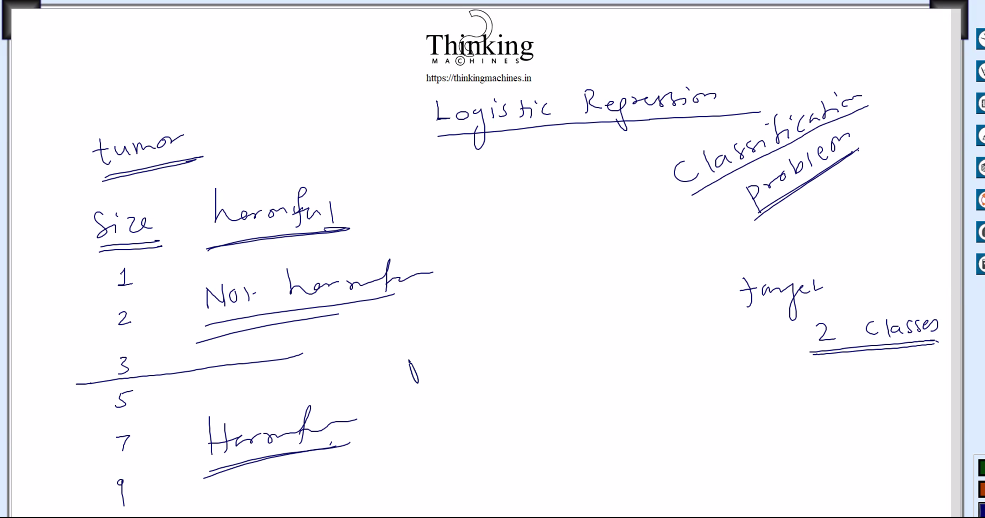 Thinking
MACHINES
https://thinkingmachines.in
Logistic Regression
Classification
Problem
tumor
Size harmful
1
Not harmful
2
3
5
7
Harmful
9
target
2 Classes